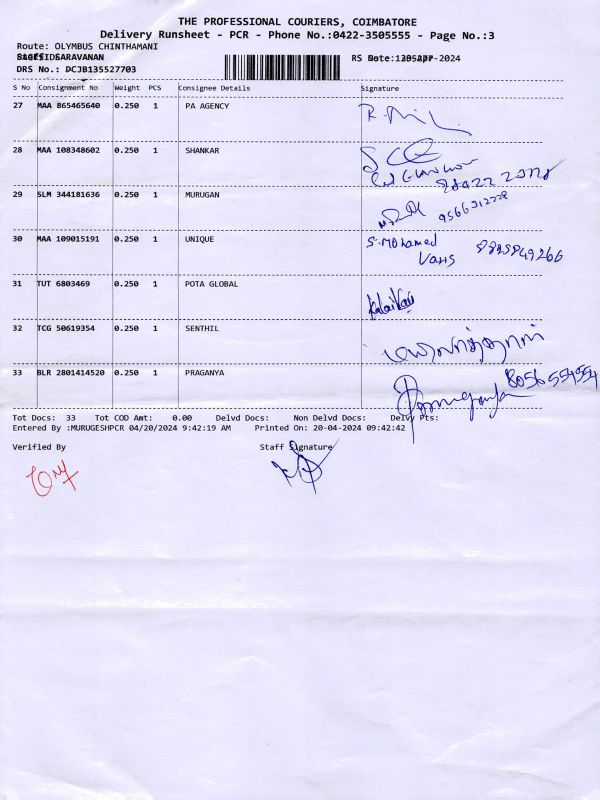 THE PROFESSIONAL COURIERS, COIMBATORE
Delivery Runsheet - PCR - Phone No.:0422-3505555 - Page No.:3
Route: OLYMBUS CHINTHAMANI
SARAVANAN
DRS No.: DCJB135527703
S No Consignment No Weight PCS Consignee Details Signature
27 MAA 865465640 0.250 1 PA AGENCY
28 MAA 108348602 0.250 1 SHANKAR
29 SLM 344181636 0.250 1 MURUGAN
9566312228
30 MAA 109015191 0.250 1 UNIQUE S. Mohamed
8825849266
31 TUT 6803469 0.250 1 POTA GLOBAL
32 TCG 50619354 0.250 1 SENTHIL
33 BLR 2801414520 0.250 1 PRAGANYA
Tot Docs: 33 Tot COD Amt: 0.00 Delvd Docs: Non Delvd Docs: Delvy Pts:
Entered By :MURUGESHPCR 04/20/2024 9:42:19 AM Printed On: 20-04-2024 09:42:42
Verified By Staff Signature